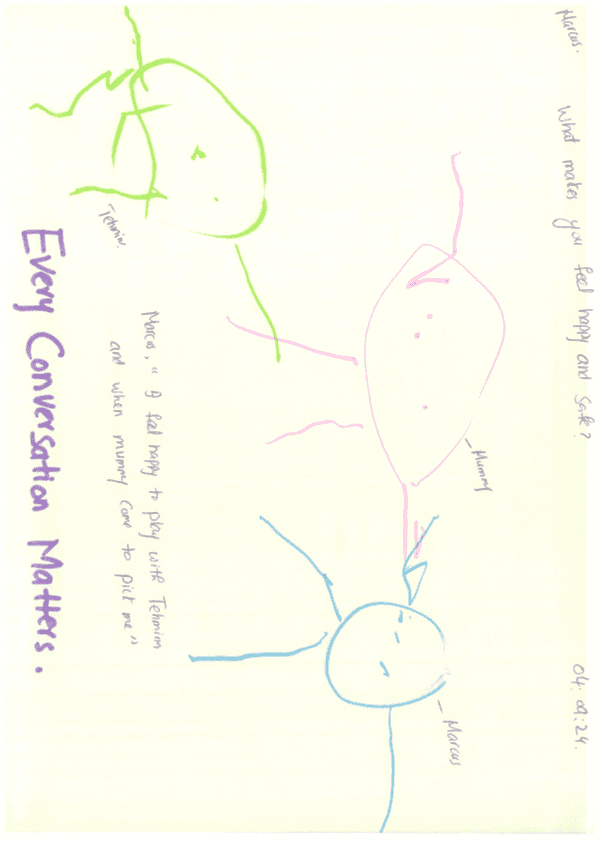 Marcus. What makes you feel happy and safe? 04.09.24.
- Mummy
- Marcus
Tehmim.
Marcus, "I feel happy to play with Tehmim
and when mummy come to pick me"
Every Conversation Matters.